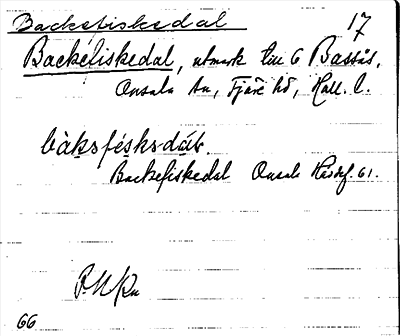 Backsfisksdal
17
Backefiskedal, utmark till 6 Bassås,
Onsala sn, Fjäre hd, Hall. l.
bàksfésks-dáls.
Backefiskedal Onsala Hävdsf. 61.
66